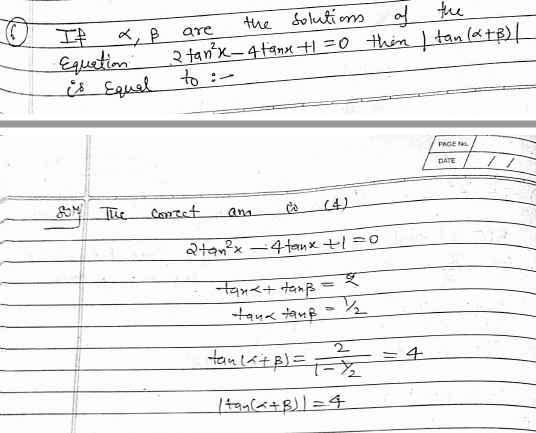 6 If α, β are the solutions of the
Equation 2tan²x - 4tanx + 1 = 0 then |tan(α+β)|
is Equal to :-
PAGE No.
DATE / /
Solⁿ The correct ans is (4)
2tan²x - 4tanx + 1 = 0
tanα + tanβ = 2
tanα tanβ = 1/2
tan(α+β) = 2/(1 - 1/2) = 4
|tan(α+β)| = 4